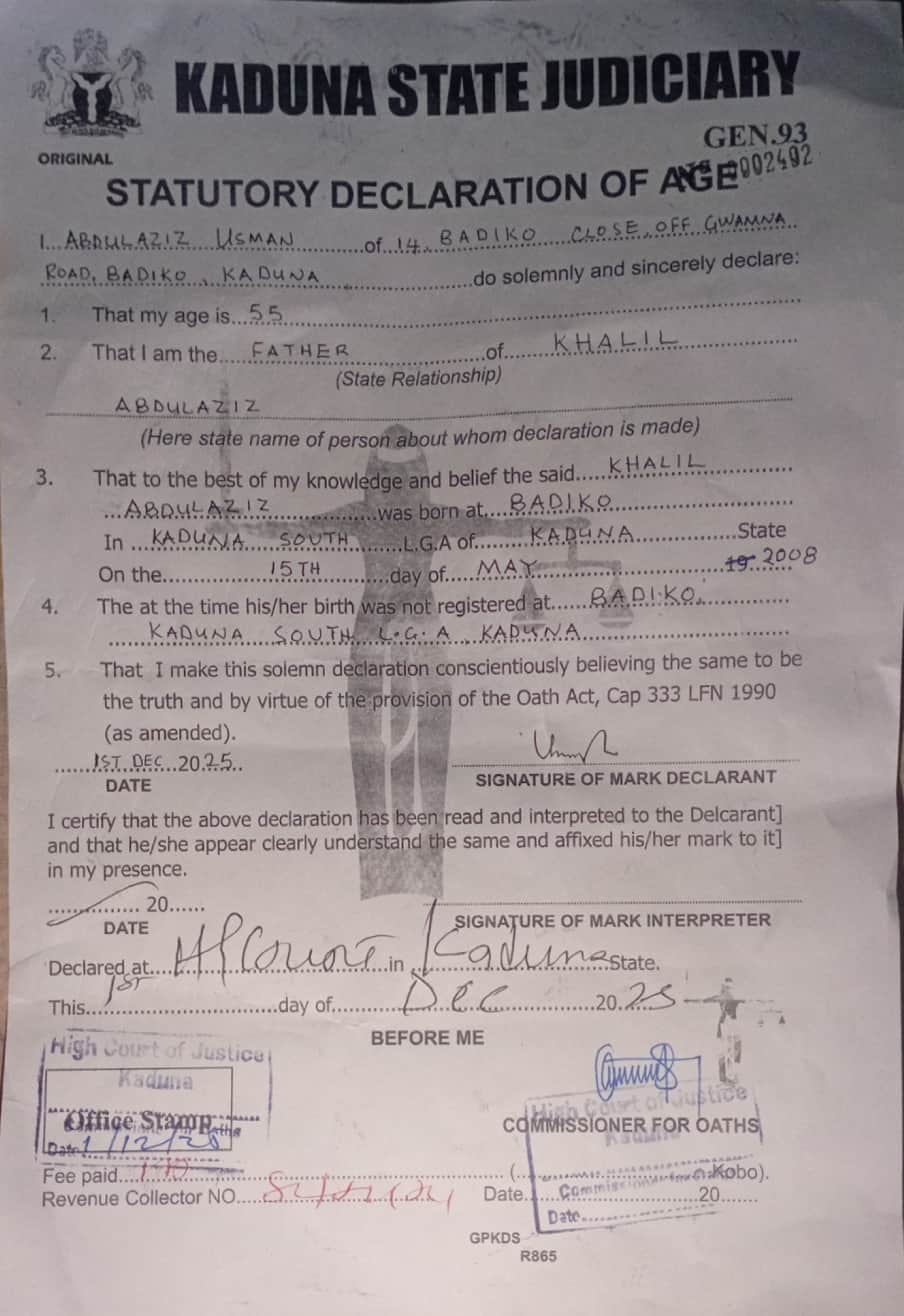 KADUNA STATE JUDICIARY
GEN.93
ORIGINAL
STATUTORY DECLARATION OF AGE 0002492
I...ABDULAZIZ USMAN...of 14, BADIKO CLOSE, OFF GWAMNA
ROAD, BADIKO, KADUNA...do solemnly and sincerely declare:
1. That my age is...55
2. That I am the...FATHER...of...KHALIL
(State Relationship)
ABDULAZIZ
(Here state name of person about whom declaration is made)
3. That to the best of my knowledge and belief the said...KHALIL
...ABDULAZIZ...was born at...BADIKO
In...KADUNA SOUTH...L.G.A of...KADUNA...State
On the...15TH...day of...MAY...19 2008
4. The at the time his/her birth was not registered at...BADIKO,
KADUNA SOUTH L.G.A, KADUNA
5. That I make this solemn declaration conscientiously believing the same to be
the truth and by virtue of the provision of the Oath Act, Cap 333 LFN 1990
(as amended).
1ST DEC 2025
DATE
SIGNATURE OF MARK DECLARANT
I certify that the above declaration has been read and interpreted to the Delcarant]
and that he/she appear clearly understand the same and affixed his/her mark to it]
in my presence.
...20...
DATE
SIGNATURE OF MARK INTERPRETER
Declared at...H/Court...in...Kaduna...State.
This...1st...day of...Dec...2025
BEFORE ME
High Court of Justice
Kaduna
Office Stamp
Date 1/12/25
High Court of Justice
Kaduna
COMMISSIONER FOR OATHS
Fee paid...(...Kobo).
Revenue Collector NO...Date...20...
Date
GPKDS
R865